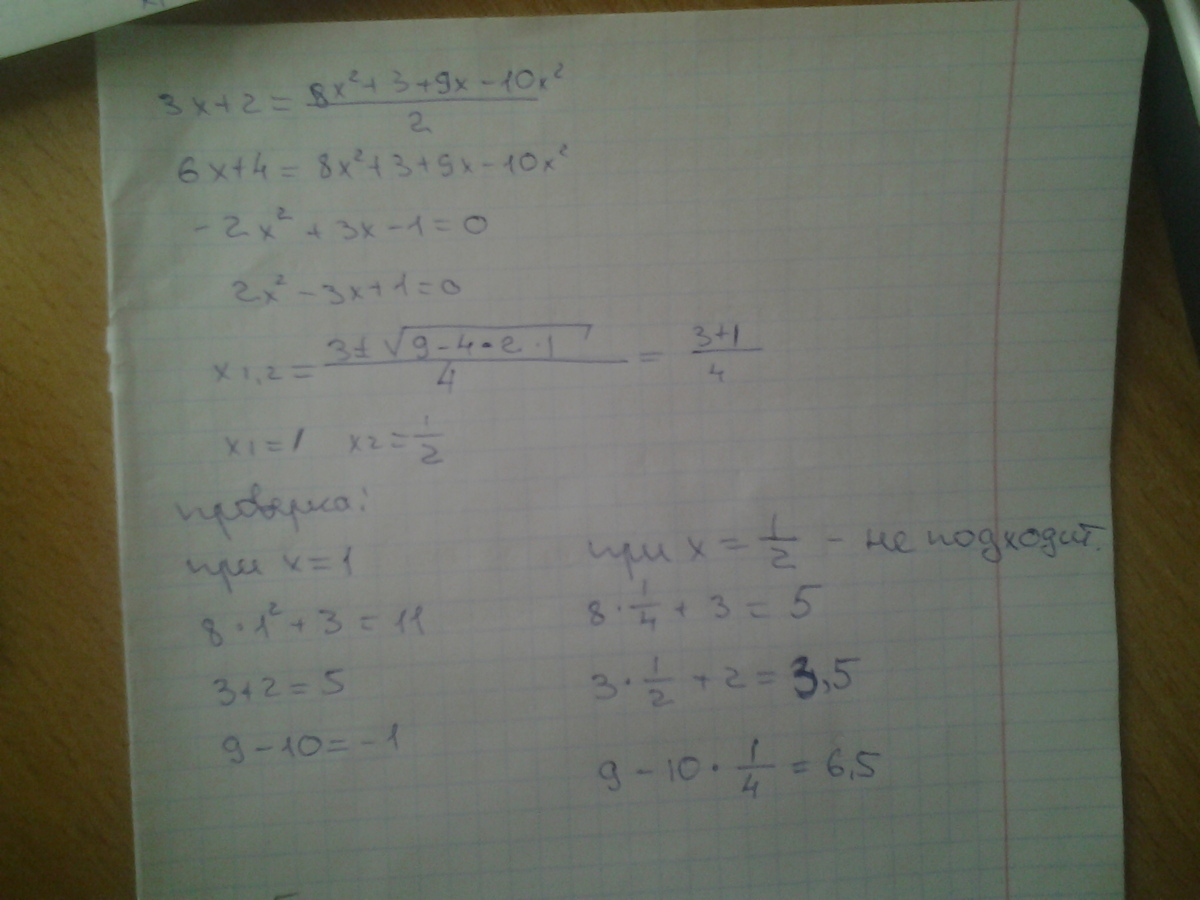 3x+2 = (8x²+3+9x-10x²)/2
6x+4 = 8x²+3+9x-10x²
-2x²+3x-1=0
2x²-3x+1=0
x1,2 = (3±√(9-4·2·1))/4 = (3+1)/4
x1=1 x2=1/2
проверка:
при x=1
8·1²+3=11
3+2=5
9-10=-1
при x=1/2 - не подходит.
8·1/4+3=5
3·1/2+2=3,5
9-10·1/4=6,5